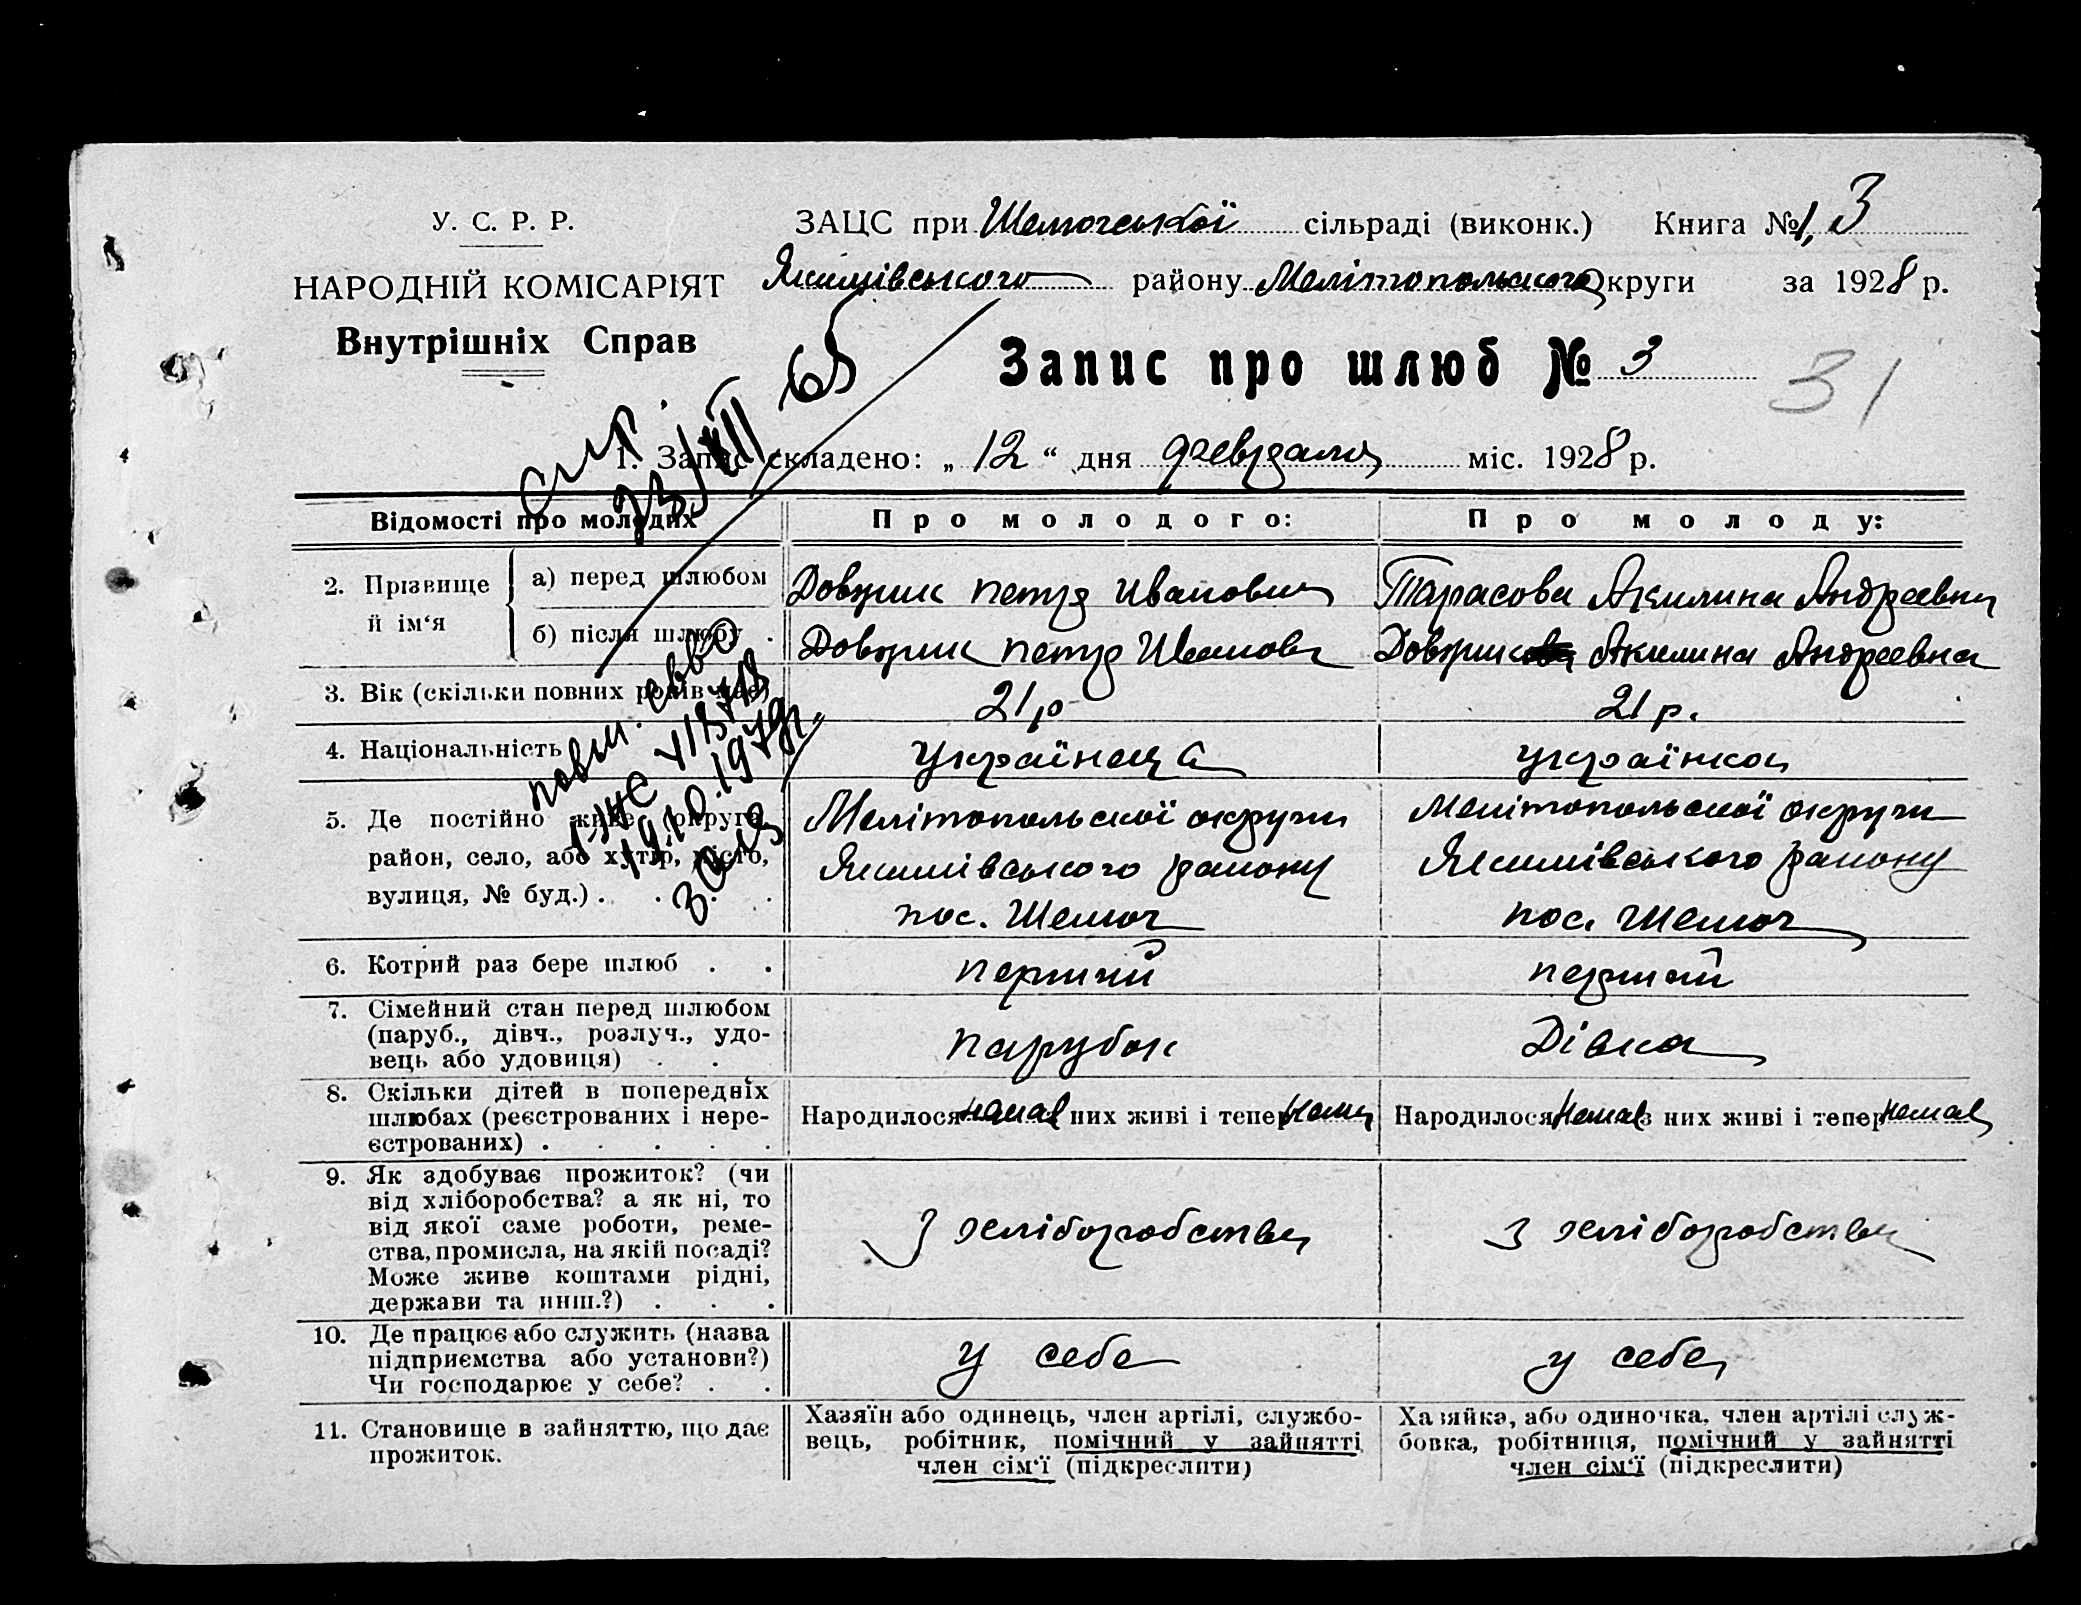 У. С. Р. Р.
НАРОДНІЙ КОМІСАРІЯТ
Внутрішніх Справ
ЗАЦС при Шелюгської сільраді (виконк.) Книга № 1, 3
Якимівського району Мелітопольського округи за 1928 р.
Запис про шлюб № 3
31
1. Запис складено: „ 12 “ дня февраля міс. 1928 р.
23/XII 65
Відомості про молодих
Про молодого:
Про молоду:
2. Прізвище й ім‘я
а) перед шлюбом
Довгуик Петро Иванович
Тарасова Акилина Андреевна
б) після шлюбу .
Довгуик Петро Иванов
Довгуик Акилина Андреевна
3. Вік (скільки повних років має)
21 р
21 р.
4. Національність
Українец
українка
повт. св-во
19.10.1979г.
5. Де постійно живе округа,
район, село, або хутір, місто,
вулиця, № буд.) . . . .
Мелітопольскої округи
Якимівського району
пос. Шелюг
Мелітопольскої округи
Якимівського району
пос. Шелюг
6. Котрий раз бере шлюб . .
перший
перший
7. Сімейний стан перед шлюбом
(паруб., дівч., розлуч., удо-
вець або удовиця) . .
парубок
Дівка
8. Скільки дітей в попередніх
шлюбах (реєстрованих і нере-
єстрованих) . . . . .
Народилося немає них живі і тепер нема
Народилося немає з них живі і тепер немає
9. Як здобуває прожиток? (чи
від хліборобства? а як ні, то
від якої саме роботи, реме-
ства, промисла, на якій посаді?
Може живе коштами рідні,
держави та инш.?) . . .
З хліборобства
З хліборобства
10. Де працює або служить (назва
підприємства або установи?)
Чи господарює у себе? . .
у себе
у себе
11. Становище в зайняттю, що дає
прожиток.
Хазяїн або одинець, член артілі, службо-
вець, робітник, помічний у зайнятті
член сім‘ї (підкреслити)
Хазяйка, або одиночка, член артілі служ-
бовка, робітниця, помічний у зайнятті
член сім‘ї (підкреслити)